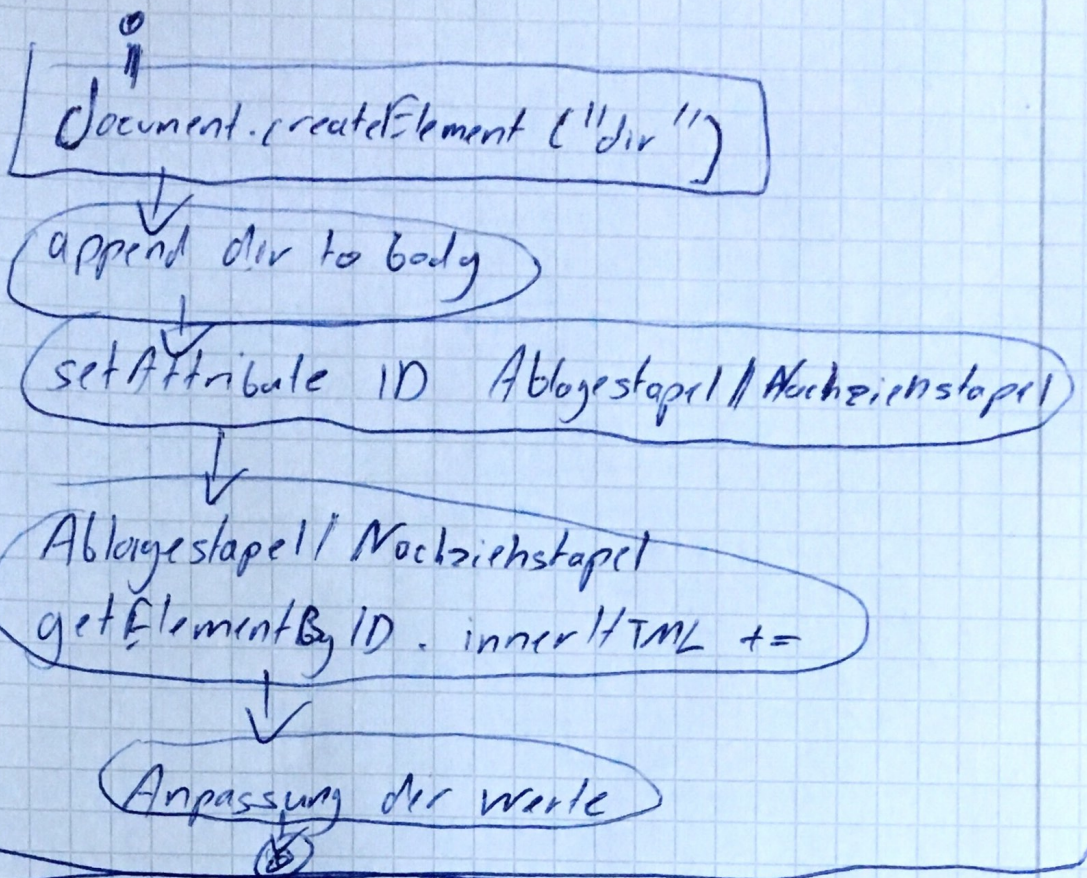 document.createElement ("dir")
append dir to body
setAttribute ID Ablagestapel // Nachziehstapel
Ablagestapel // Nachziehstapel
getElementByID. innerHTML +=
Anpassung der Werte